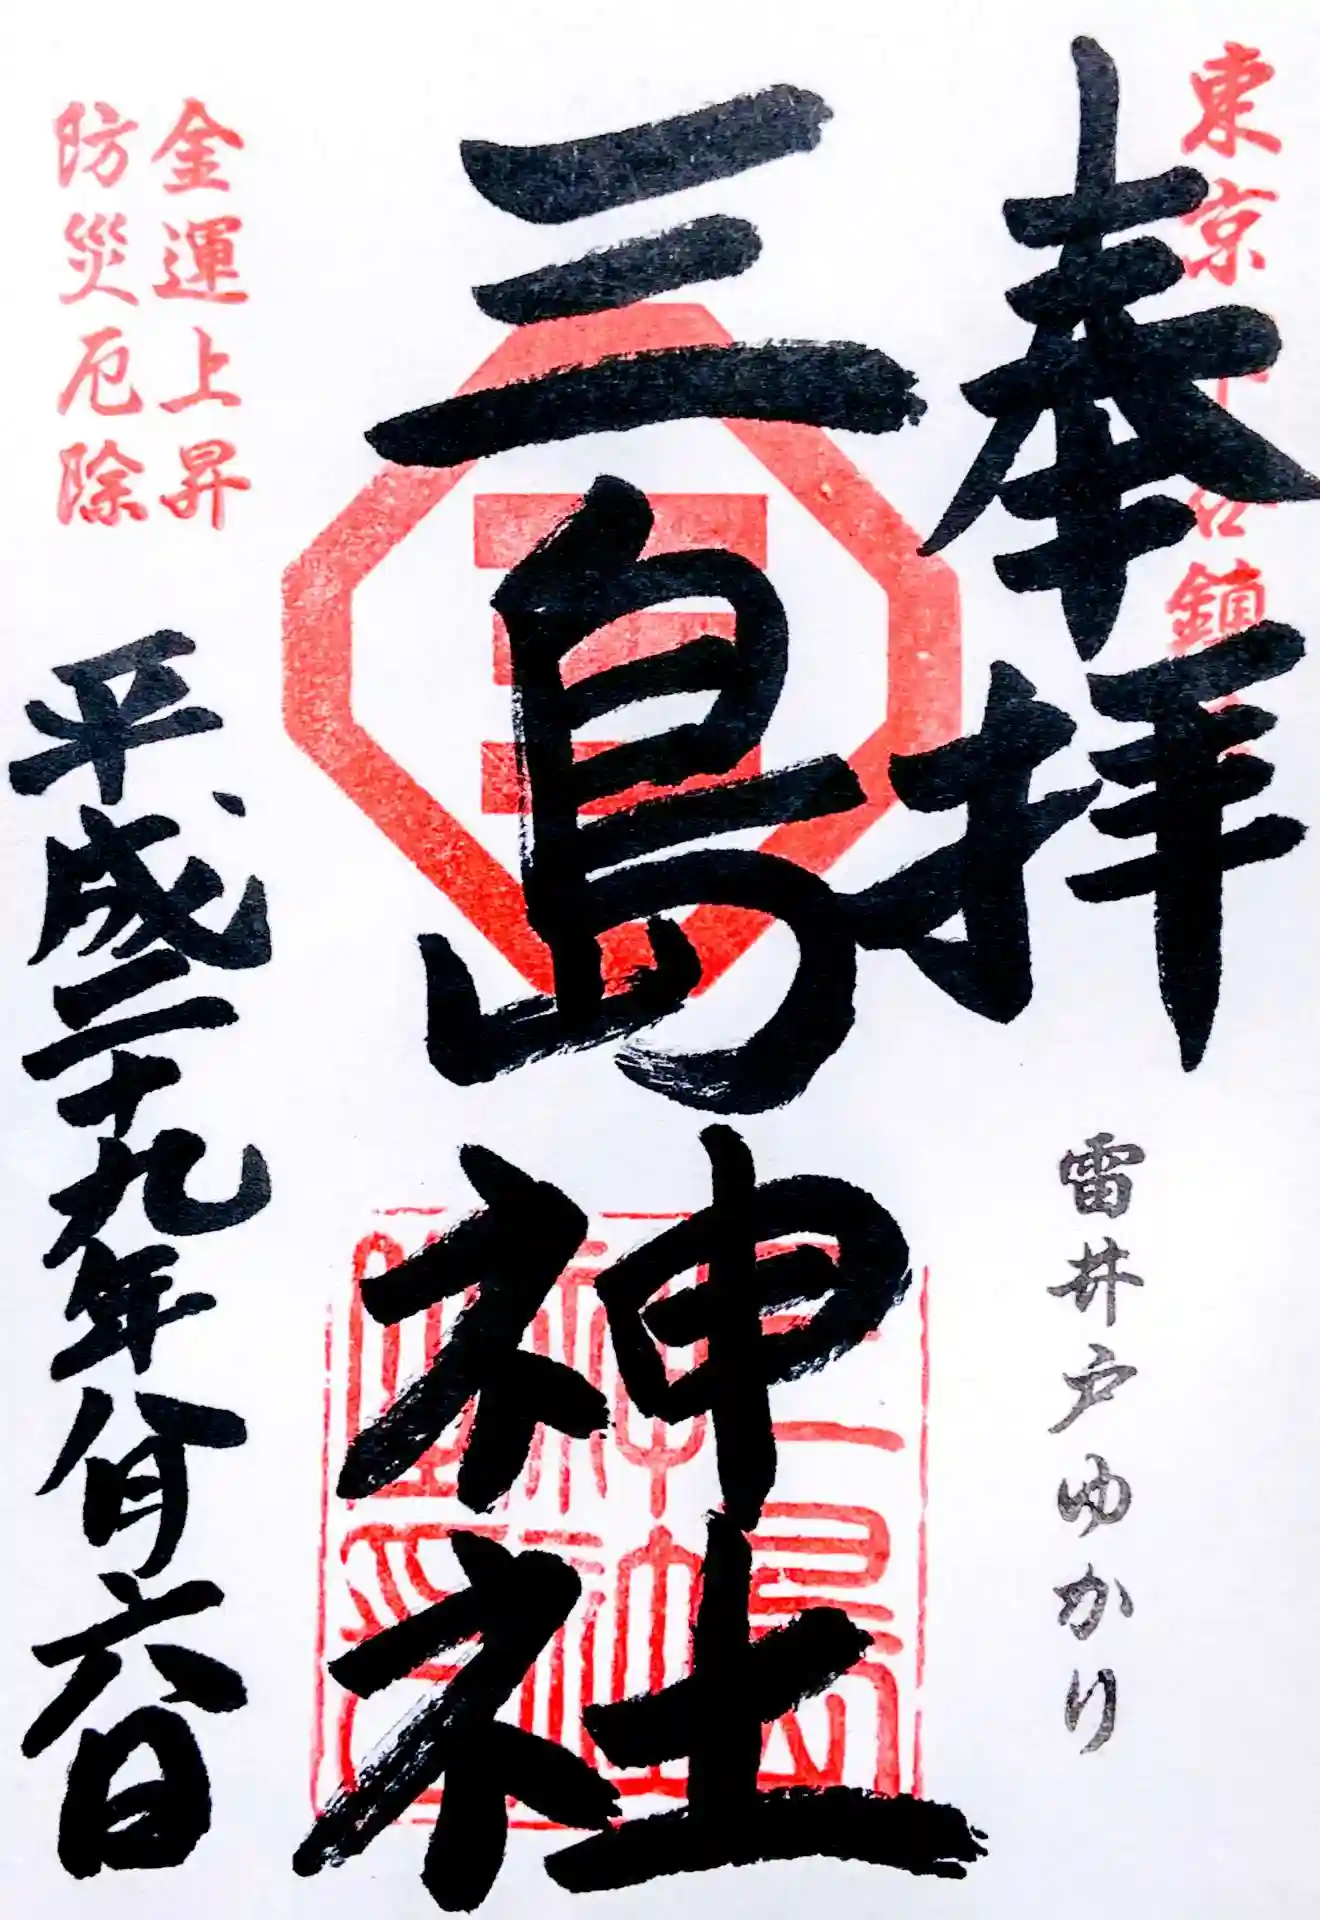 東京下谷鎮
奉拝
雷井戸ゆかり
三島神社
金運上昇
防災厄除
平成二十九年八月六日